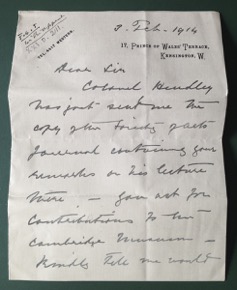 3 Feb. 1914
17, PRINCE OF WALES' TERRACE,
KENSINGTON, W.
TEL. 3407 WESTERN.
Dear Sir
Colonel Hendley
has just sent me the
copy of the Society of Arts
Journal containing your
remarks on his lecture
there — You ask for
contributions to the
Cambridge Museum —
Kindly tell me would